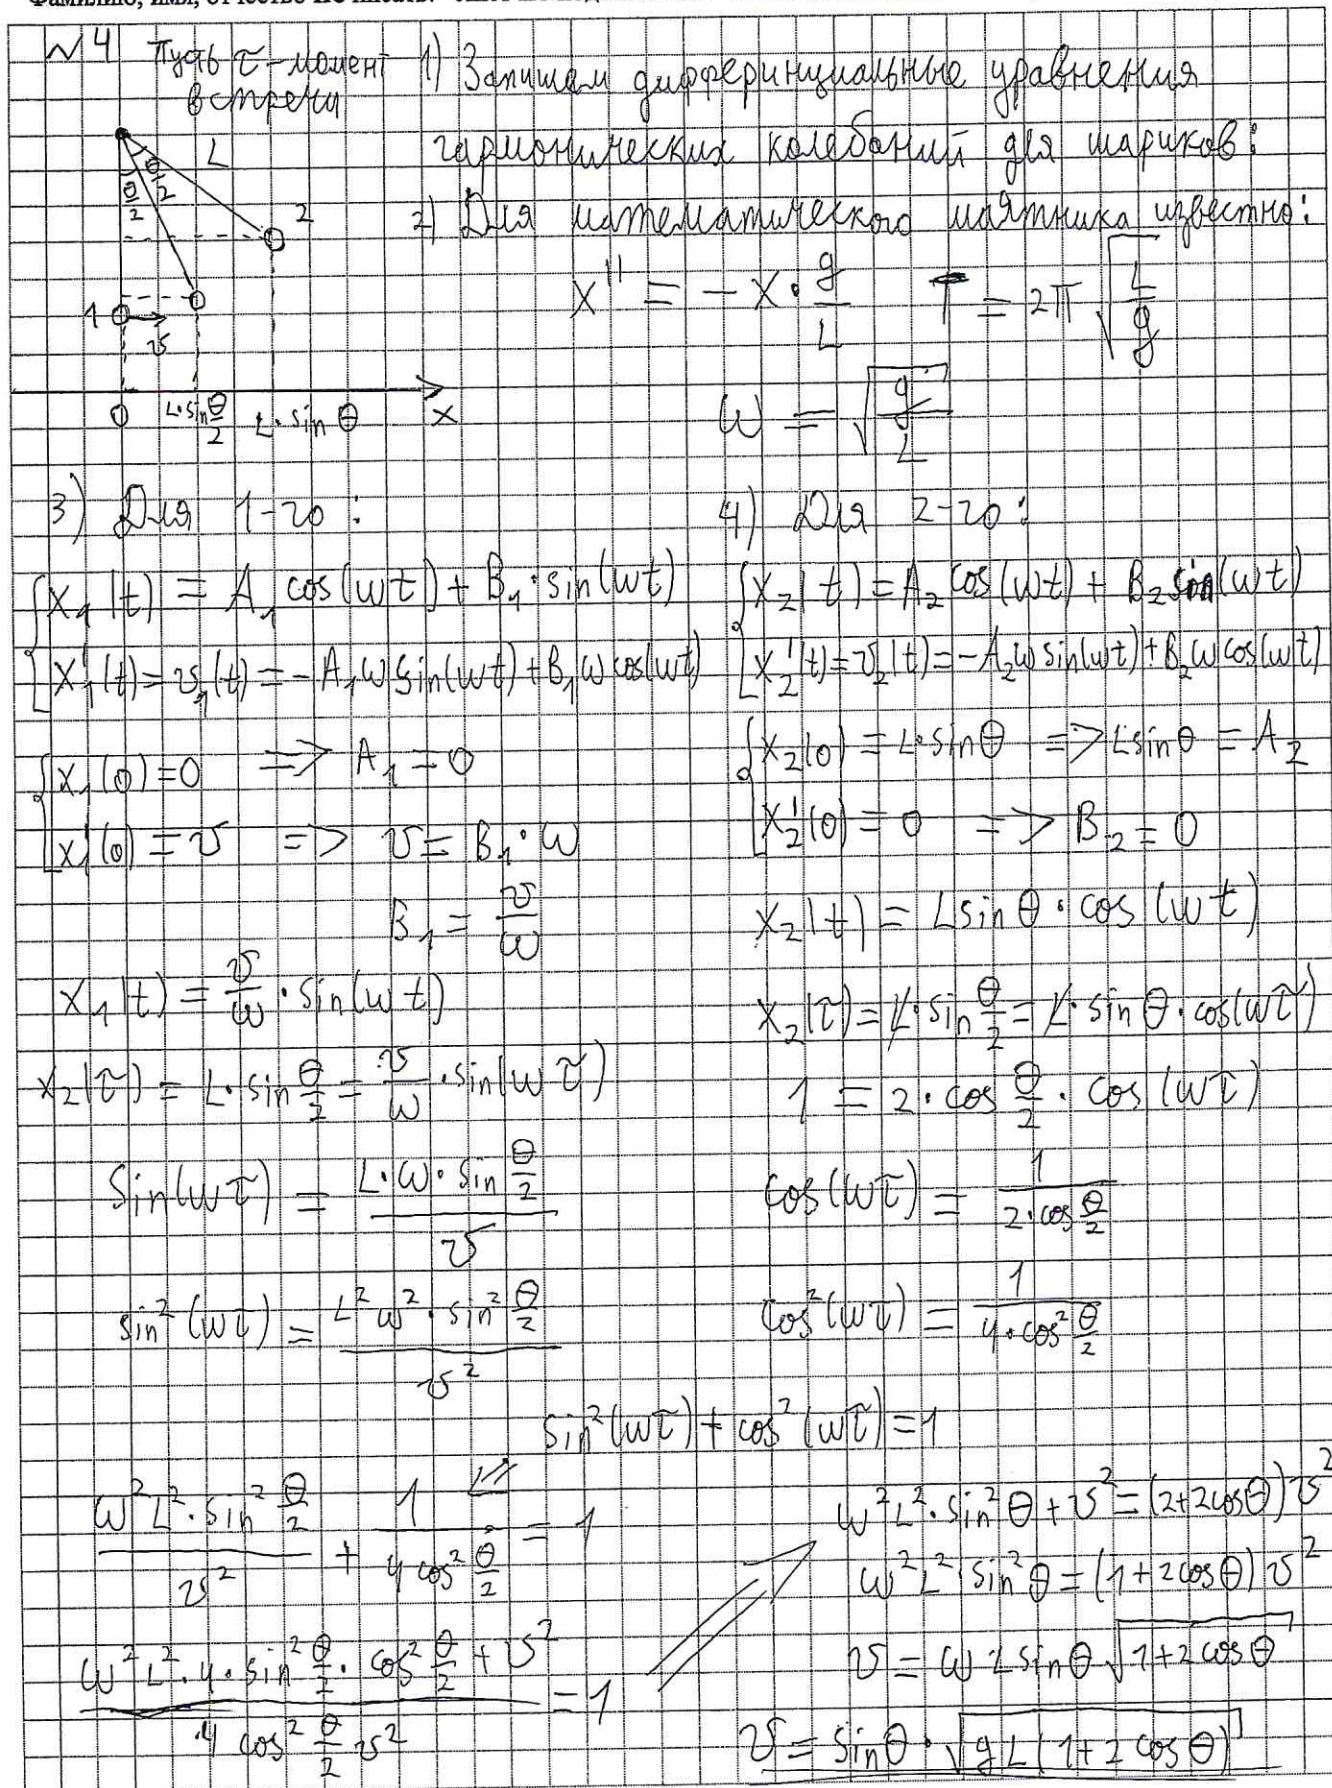 Фамилию, имя, отчество не писать.
№4 Пусть τ - момент встречи
1) Запишем дифферинциальные уравнения гармонических колебаний для шариков:
L
θ/2 θ/2
2
1
v
0 L·sin θ/2 L·sin θ x
2) Для математического маятника известно:
x'' = - x · g/L T = 2π √(L/g)
ω = √(g/L)
3) Для 1-го:
{ x₁(t) = A₁ cos(ωt) + B₁ · sin(ωt)
x₁'(t) = v₁(t) = -A₁ω sin(ωt) + B₁ω cos(ωt)
{ x₁(0) = 0 => A₁ = 0
x₁'(0) = v => v = B₁ · ω
B₁ = v/ω
x₁(t) = v/ω · sin(ωt)
x₂(τ) = L · sin θ/2 = v/ω · sin(ωτ)
sin(ωτ) = (L·ω·sin θ/2)/v
sin²(ωτ) = (L²ω²·sin² θ/2)/v²
4) Для 2-го:
{ x₂(t) = A₂ cos(ωt) + B₂ sin(ωt)
x₂'(t) = v₂(t) = -A₂ω sin(ωt) + B₂ω cos(ωt)
{ x₂(0) = L·sin θ => L sin θ = A₂
x₂'(0) = 0 => B₂ = 0
x₂(t) = L sin θ · cos(ωt)
x₂(τ) = L · sin θ/2 = L · sin θ · cos(ωτ)
1 = 2 · cos θ/2 · cos(ωτ)
cos(ωτ) = 1/(2·cos θ/2)
cos²(ωτ) = 1/(4·cos² θ/2)
sin²(ωτ) + cos²(ωτ) = 1
(ω²L²·sin² θ/2)/v² + 1/(4cos² θ/2) = 1
(ω²L²·4·sin² θ/2 · cos² θ/2 + v²)/(4 cos² θ/2 v²) = 1
ω²L²·sin²θ + v² = (2+2cosθ)v²
ω²L² sin²θ = (1+2cosθ)v²
v = ωL sinθ √(1+2cosθ)
v = sinθ · √(gL(1+2cosθ))